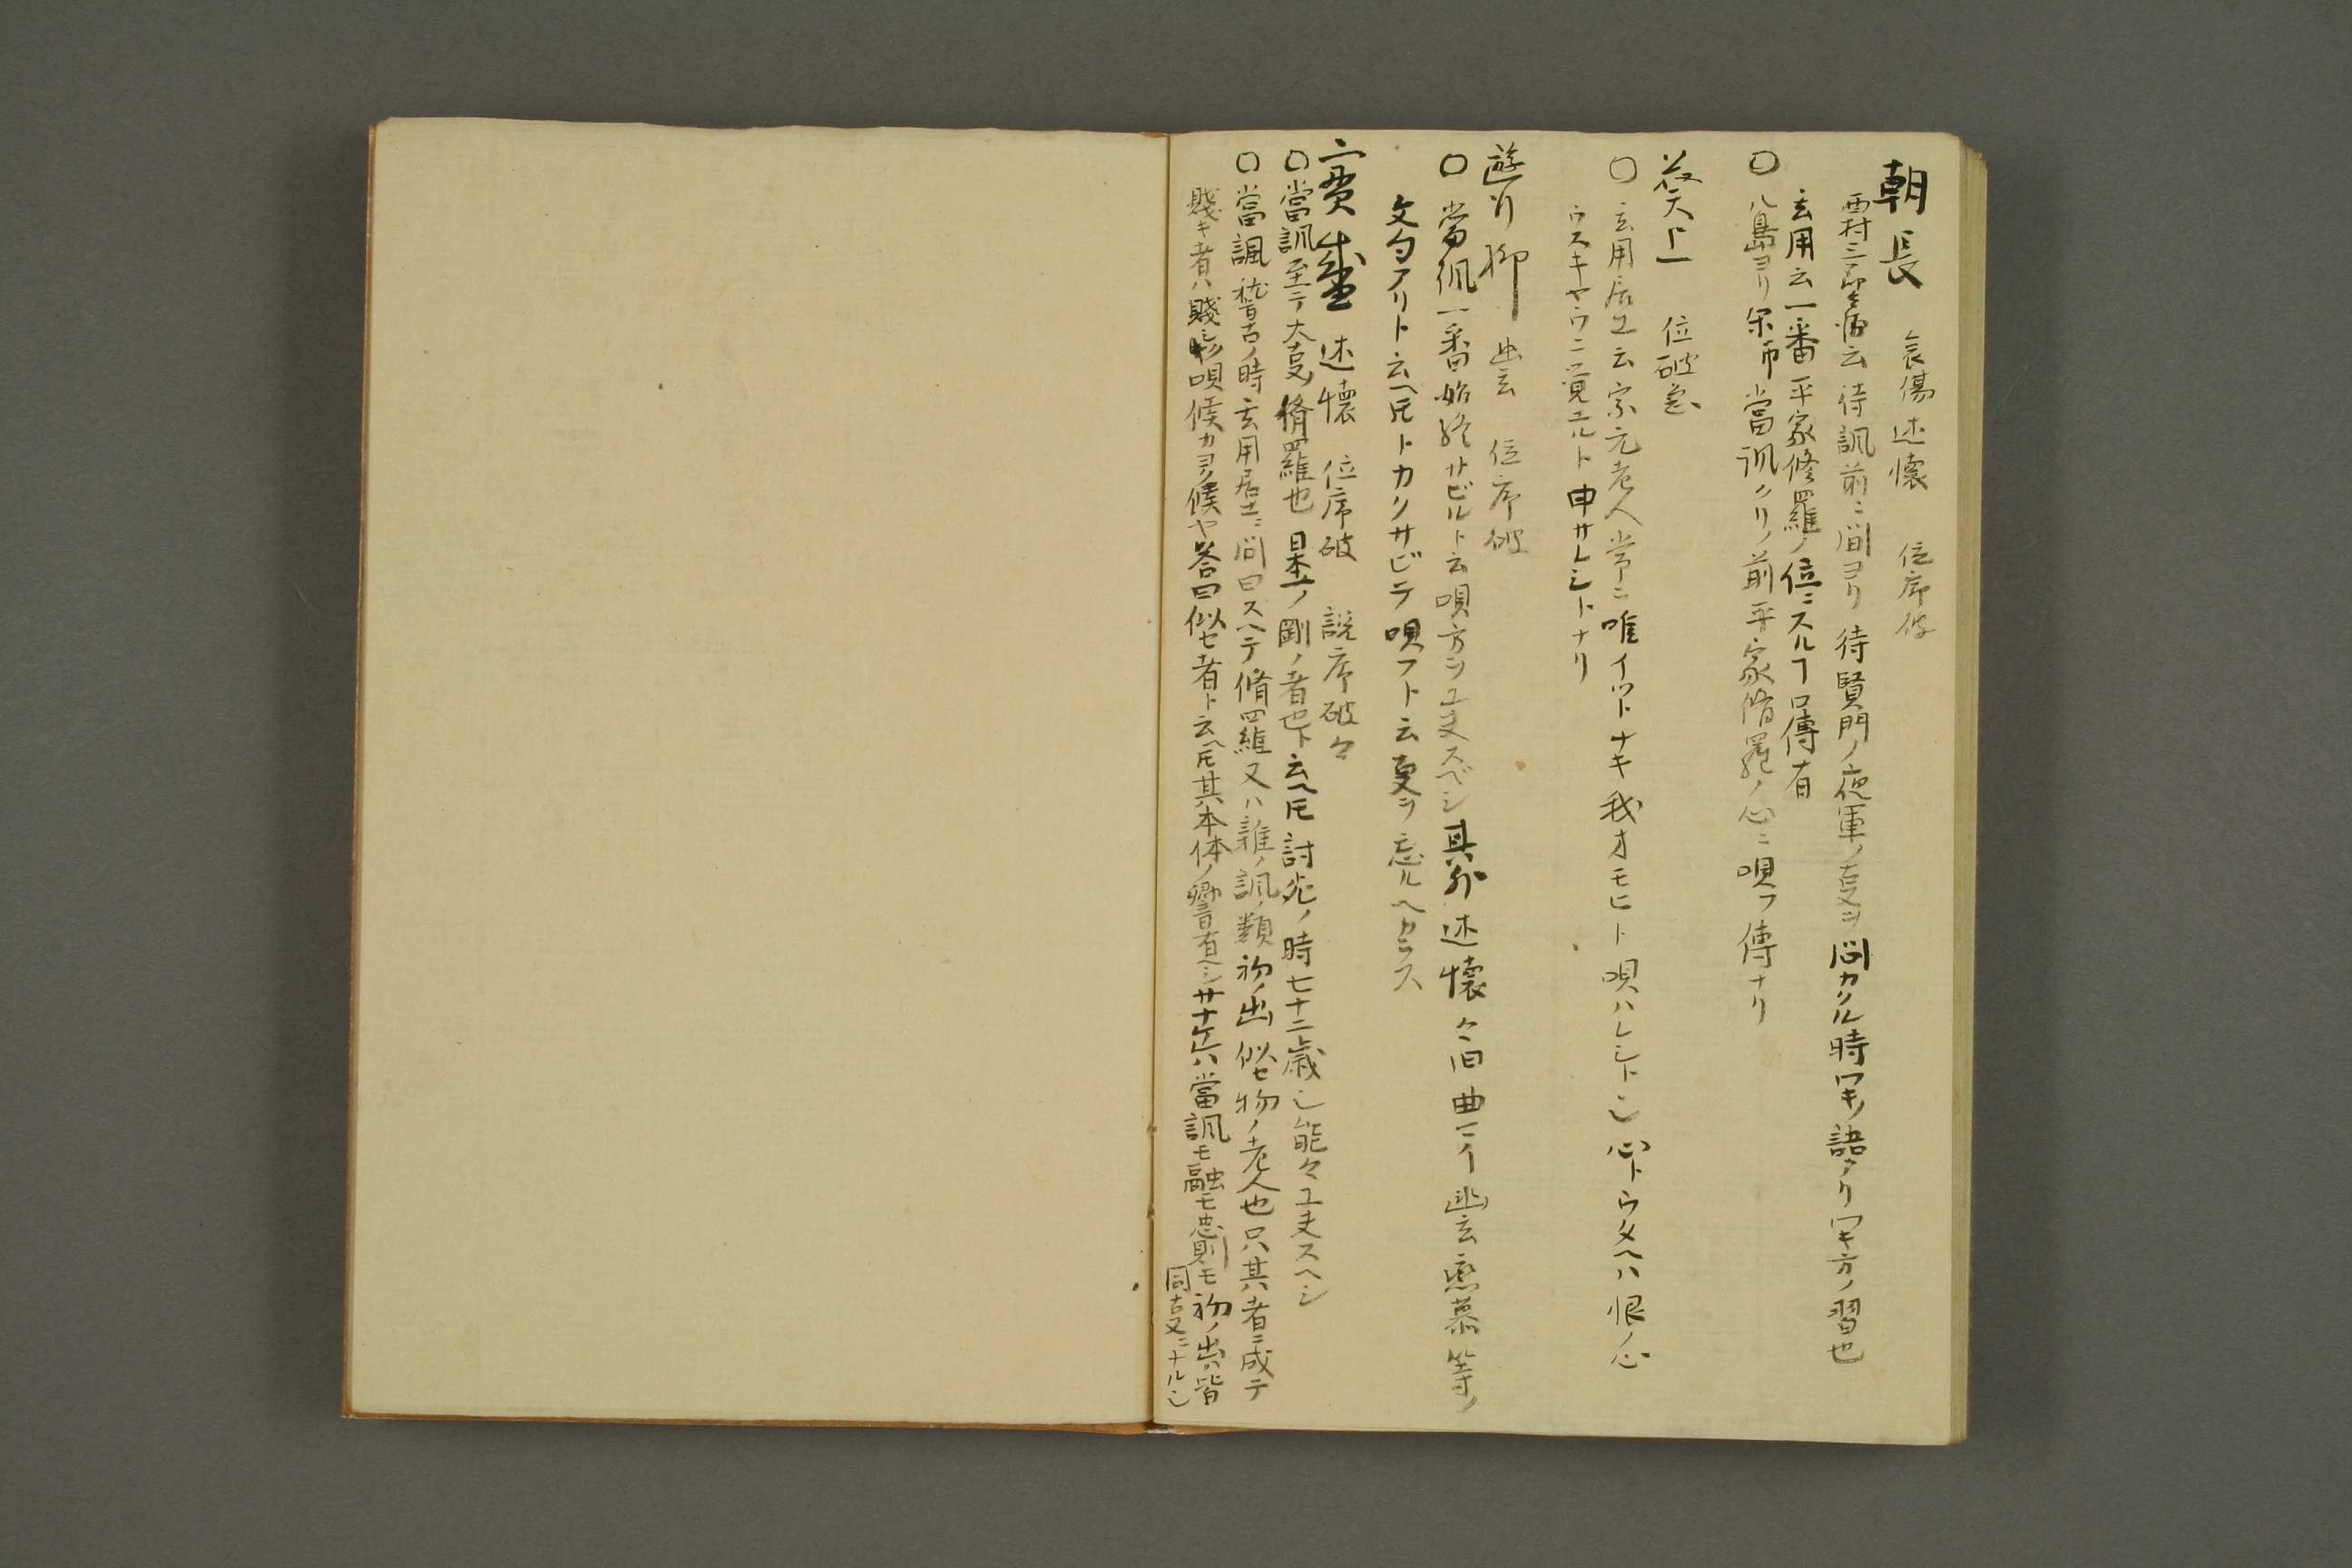 朝長　哀傷述懐　位序破
西村三郎云待諷前ニ間ヨリ待賢門ノ夜軍ノ亊ヲ問カクル時ワキノ語アリワキ方ノ習也
玄用云一番平家修羅ノ位ニスルヿ口傳有
〇八島ヨリ朶市當諷クリノ前平家脩羅ノ心ニ唄フ傳ナリ
葵上　位破急
〇玄用居士云宗元老人常ニ唯イツトナキ我オモヒト唄ハレシト心トウタヘハ恨ノ心
ウスキヤウニ覚ユルト申サレシトナリ
遊行柳　幽玄　位序破
〇當諷一番始終サビルト云唄方ヲ工夫スベシ其外述懐々旧曲ノ幽玄恋慕等ノ
文句アリト云ヘ𪜈トカクサビテ唄フト云亊ヲ忘ルヘカラス
實盛　述懐　位序破　説序破々
〇當諷至テ大亊ノ脩羅也日本一ノ剛ノ者也ト云ヘ𪜈討死ノ時七十二歳也能々工夫スヘシ
〇當諷稽古ノ時玄用居士ニ問曰スヘテ脩羅又ハ雑ノ諷ノ類初ノ出似セ物ノ老人也只其者ニ成テ
賤キ者ハ賤ク唄候カヨク候ヤ答曰似セ者ト云ヘ𪜈其本体ノ響有ヘシサナケレハ當諷モ融モ忠則モ初ノ出ハ皆
同亊ニナル也